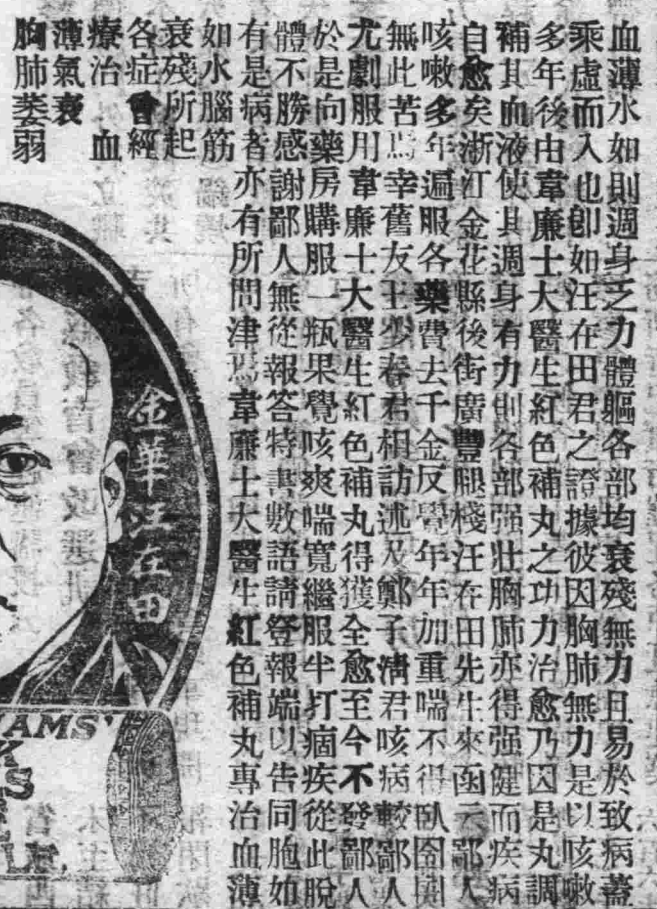 血薄水如則週身乏力體軀各部均衰殘無力且易於致病蓋
乘虛而入也卽如汪在田君之證據彼因胸肺無力是以咳嗽
多年後由韋廉士大醫生紅色補丸之功力治愈乃因是丸調
補其血液使其週身有力則各部强壯胸肺亦得强健而疾病
自愈矣浙江金花縣後街廣豐腿棧汪在田先生來函云鄙人
咳嗽多年遍服各藥費去千金反覺年年加重喘不得臥
無此苦焉幸舊友王少春君相訪述及鄭子淸君咳病較鄙人
尤劇服用韋廉士大醫生紅色補丸得獲全愈至今不發鄙人
於是向藥房購服一瓶果覺咳爽喘寬繼服半打痼疾從此脫
體不勝感謝鄙人無從報答特書數語請登報端以告同胞如
有是病者亦有所問津焉韋廉士大醫生紅色補丸專治血薄
如水腦筋
衰殘所起
各症曾經
療治 血
薄氣衰
胸肺萎弱
金華汪在田
AMS'